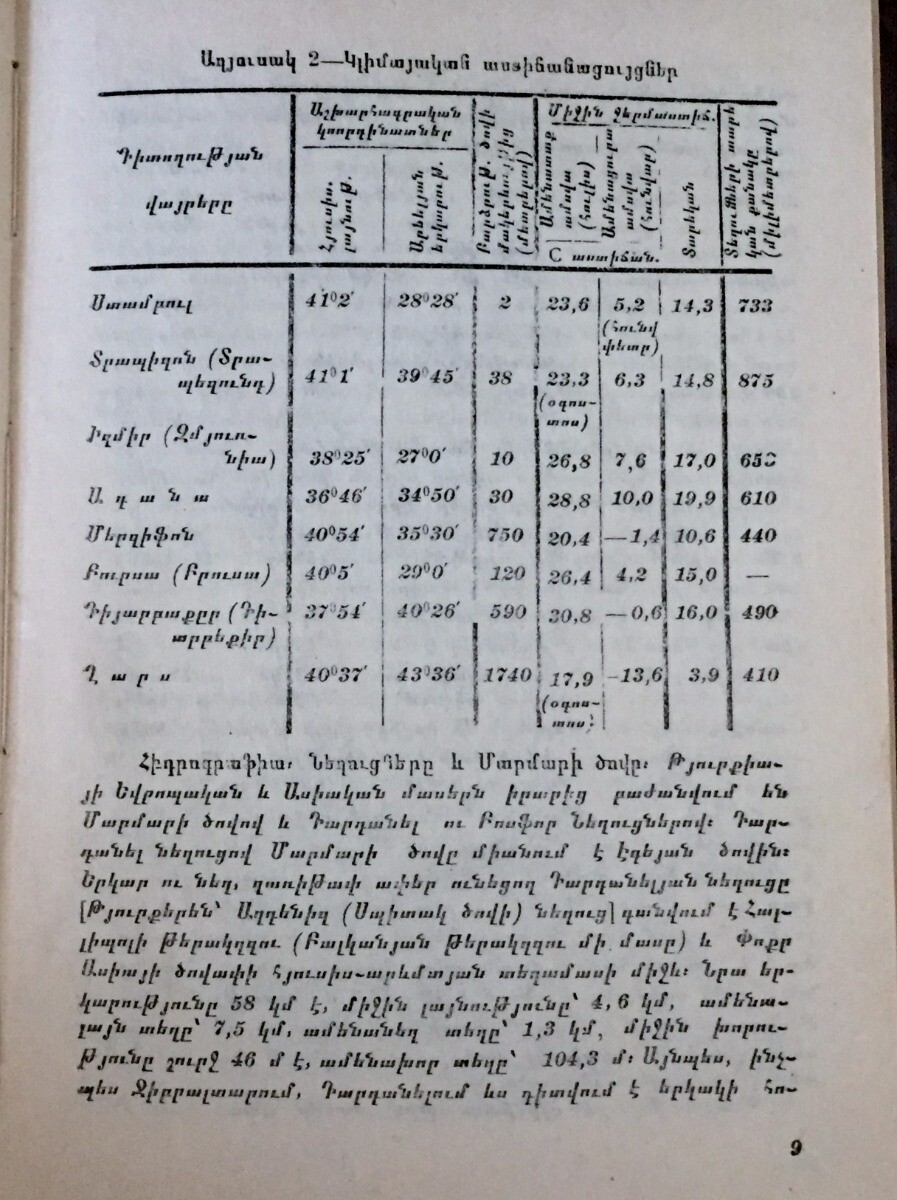 Աղյուսակ 2—Կլիմայական աստիճանացույցներ
Դիտողության
վայրերը
Աշխարհագրական
կոորդինատներ
Հյուսիս.
լայնութ.
Արևելյան
երկարութ.
Բարձրութ. ծովի
մակերևույթից
(մետրերով)
Միջին ջերմաստիճ.
Ամենատաք
ամսվա
(հուլիս)
Ամենացուրտ
ամսվա
(հունվար)
C աստիճան.
Տարեկան
Տեղումների տարե
կան քանակը
(միլիմետրերով)
Ստամբուլ 41⁰2′ 28⁰28′ 2 23,6 5,2 14,3 733
(հունվ
փետր)
Տրապիզոն (Տրա-
պեզունդ) 41⁰1′ 39⁰45′ 38 23,3 6,3 14,8 875
(օգոս-
տոս)
Իզմիր (Զմյուռ-
նիա) 38⁰25′ 27⁰0′ 10 26,8 7,6 17,0
Ադանա 36⁰46′ 34⁰50′ 30 28,8 10,0 19,9 610
Մերզիֆոն 40⁰54′ 35⁰30′ 750 20,4 —1,4 10,6 440
Բուրսա (Բրուսա) 40⁰5′ 29⁰0′ 120 26,4 4,2 15,0 —
Դիյարբաքըր (Դի-
արբեքիր) 37⁰54′ 40⁰26′ 590 30,8 —0,6 16,0 490
Ղարս 40⁰37′ 43⁰36′ 1740 17,9 -13,6 3,9 410
(օգոս-
տոս)
Հիդրոգրաֆիա։ Նեղուցները և Մարմարի ծովը։ Թյուրքիա-
յի Եվրոպական և Ասիական մասերն իրարից բաժանվում են
Մարմարի ծովով և Դարդանել ու Բոսֆոր նեղուցներով։ Դար-
դանել նեղուցով Մարմարի ծովը միանում է Էգեյան ծովին։
Երկար ու նեղ, զառիթափ ափեր ունեցող Դարդանելյան նեղուցը
[Թյուրքերեն՝ Աղդենիզ (Սպիտակ ծովի) նեղուց] գտնվում է Հալ-
լիպոլի թերակղզու (Բալկանյան թերակղզու մի մասը) և Փոքր
Ասիայի ծովափի հյուսիս-արևմտյան տեղամասի միջև։ Նրա եր-
կարությունը 58 կմ է, միջին լայնությունը՝ 4,6 կմ, ամենա-
լայն տեղը՝ 7,5 կմ, ամենանեղ տեղը՝ 1,3 կմ, միջին խորու-
թյունը շուրջ 46 մ է, ամենախոր տեղը՝ 104,3 մ։ Այնպես, ինչ-
պես Ջիբրալտարում, Դարդանելում ևս դիտվում է երկակի հո-
9